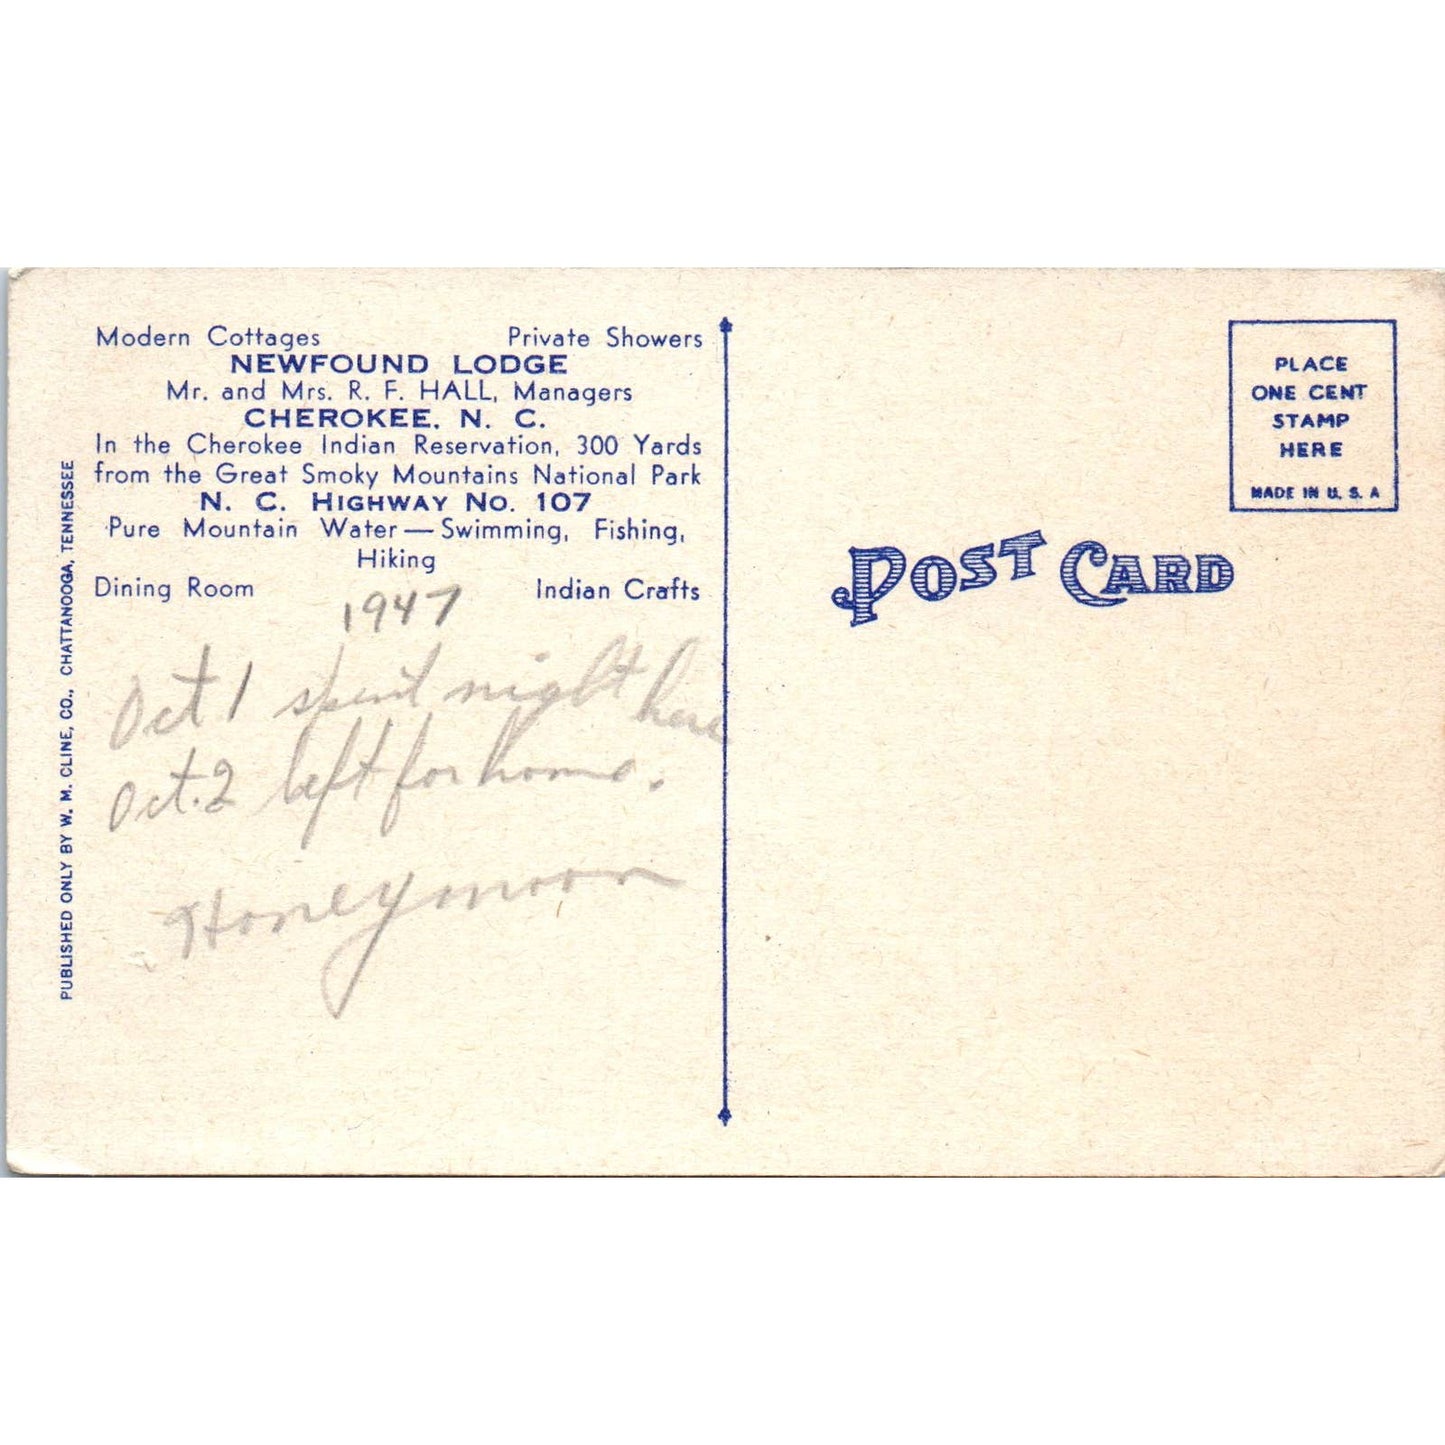 Modern Cottages Private Showers
NEWFOUND LODGE
Mr. and Mrs. R. F. HALL, Managers
CHEROKEE, N. C.
In the Cherokee Indian Reservation, 300 Yards
from the Great Smoky Mountains National Park
N. C. HIGHWAY NO. 107
Pure Mountain Water — Swimming, Fishing,
Hiking
Dining Room Indian Crafts
1947
Oct 1 spent night here
Oct. 2 left for home.
Honeymoon
PUBLISHED ONLY BY W. M. CLINE, CO., CHATTANOOGA, TENNESSEE
POST CARD
PLACE
ONE CENT
STAMP
HERE
MADE IN U. S. A